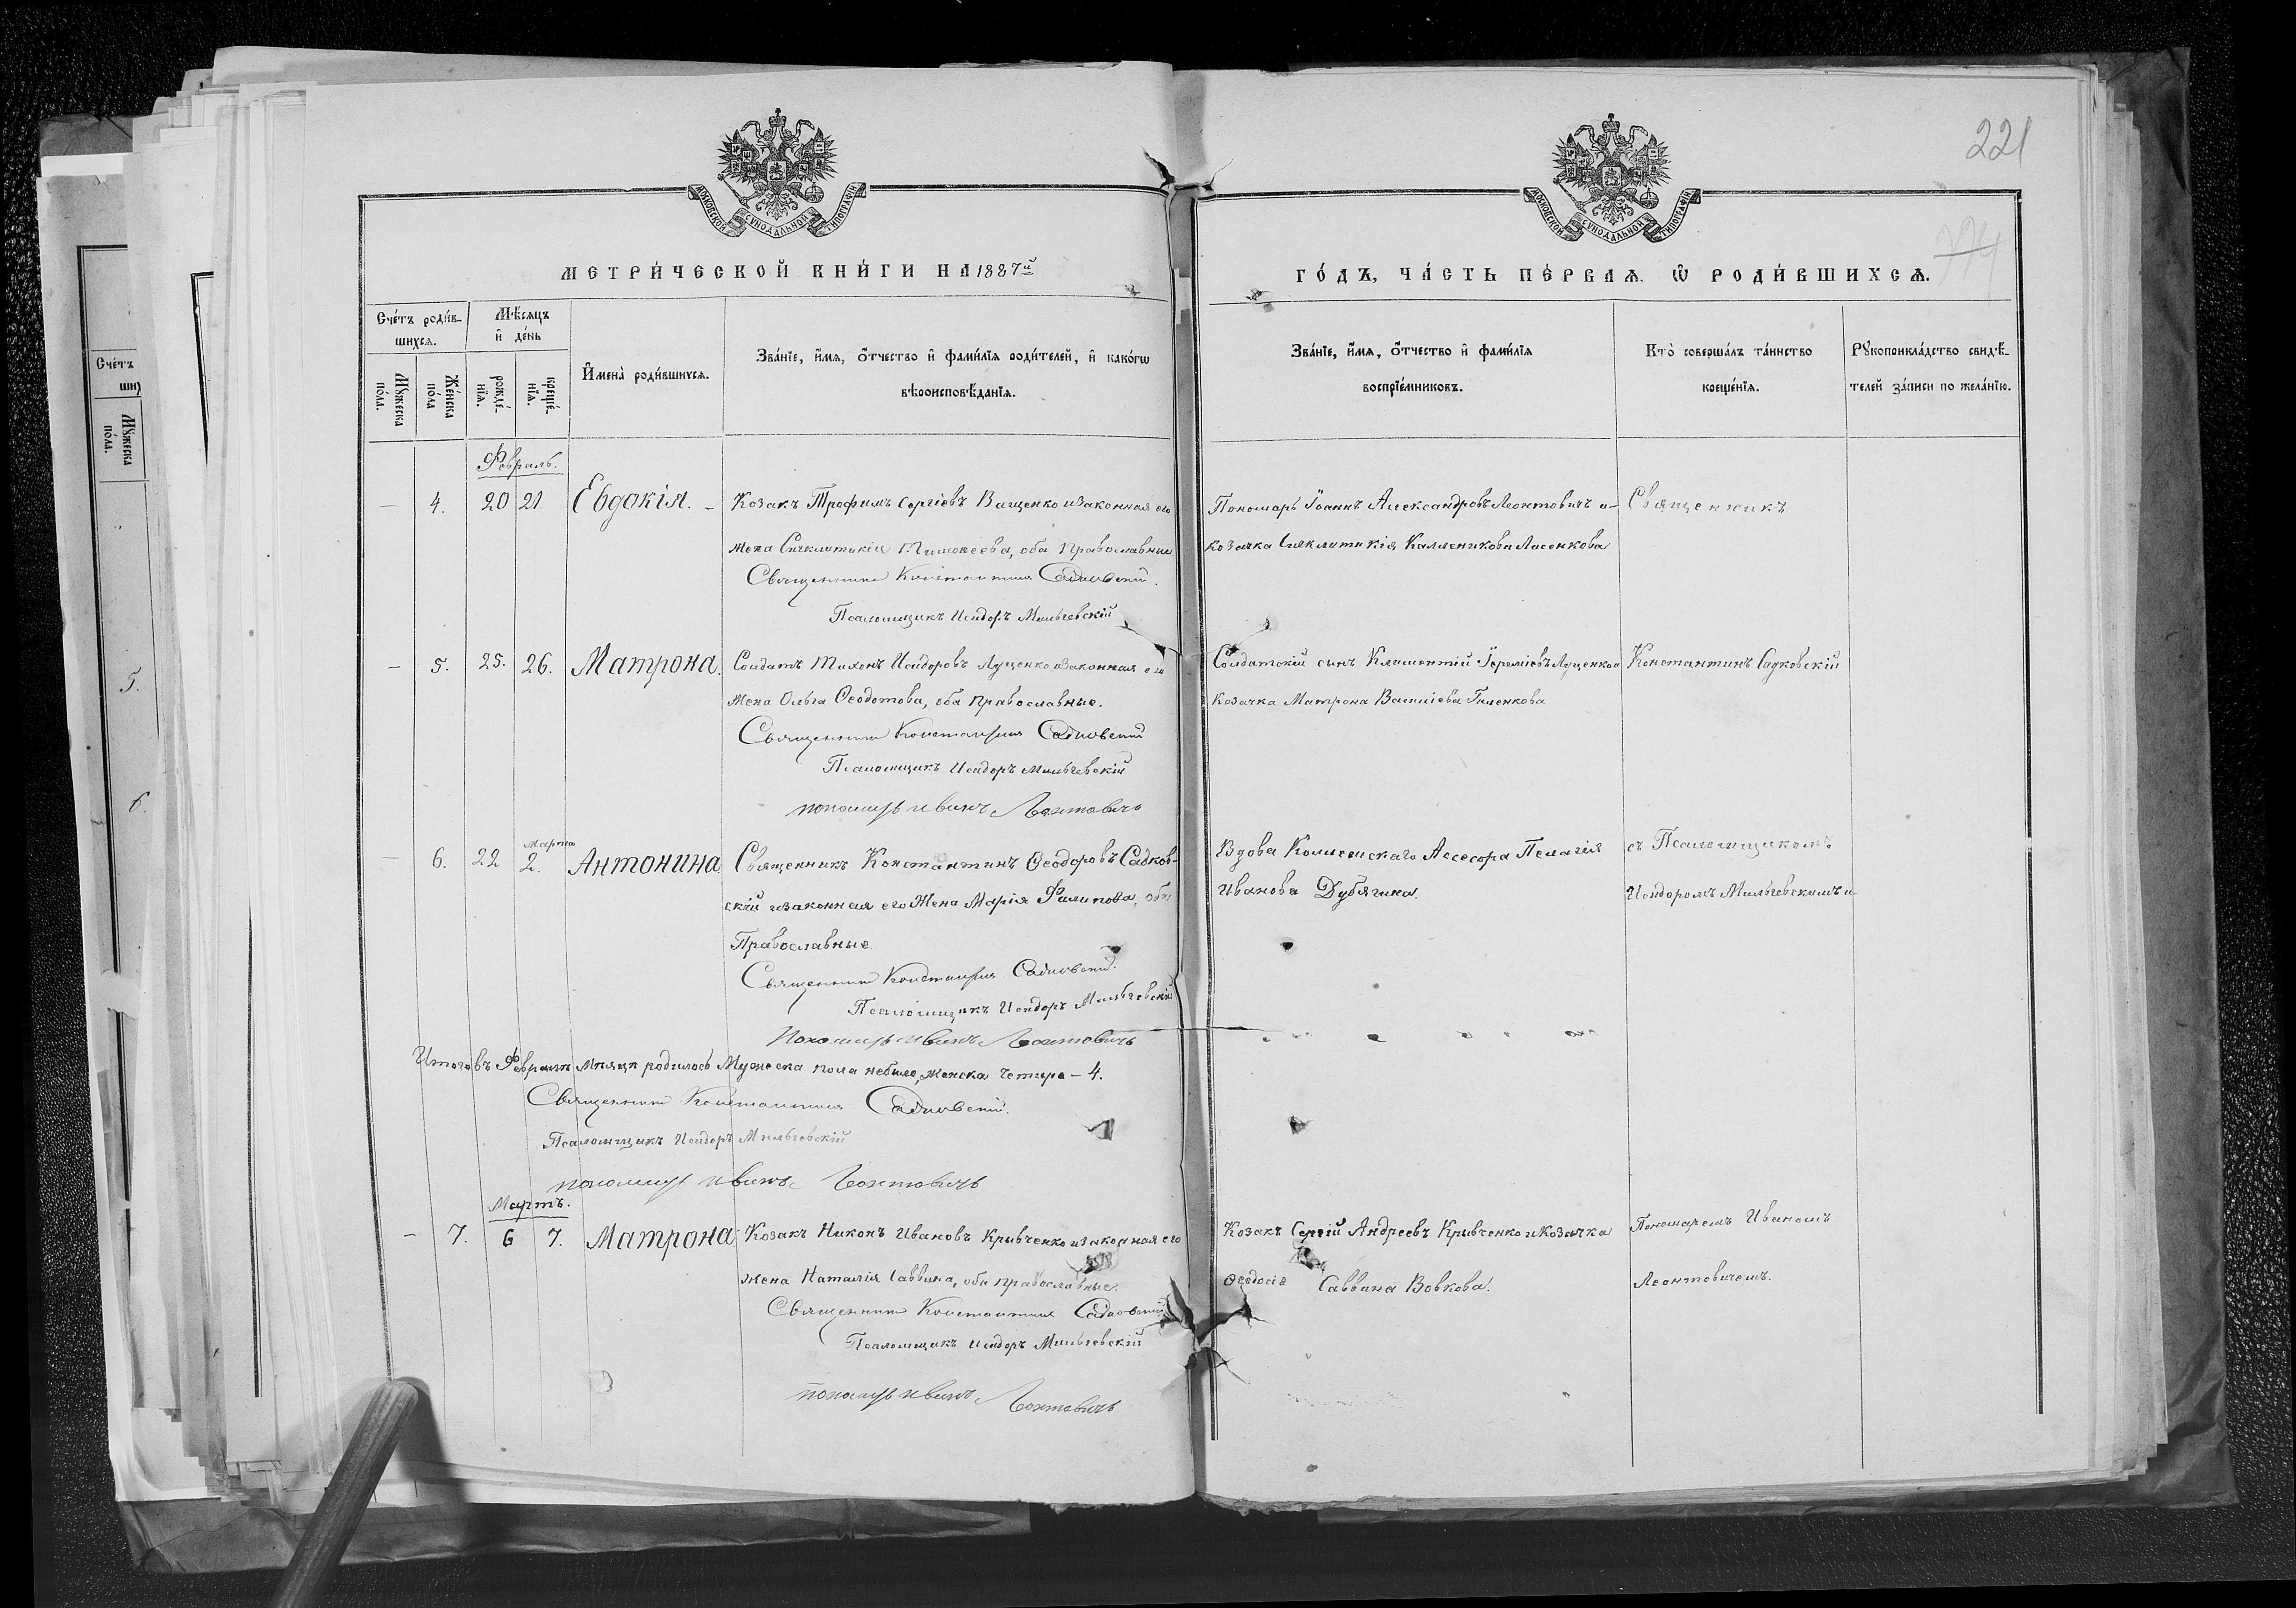 221
МОСКОВСКОЙ СУНОДАЛЬНОЙ ТИПОГРАФІИ
МОСКОВСКОЙ СУНОДАЛЬНОЙ ТИПОГРАФІИ
МЕТРИ́ЧЕСКОЙ КНИ́ГИ НА 1887й
ГО́ДЪ, ЧА́СТЬ ПЕ́РВАЯ, Ѿ РОДИ́ВШИХСЯ.
Сче́тъ роди́в-
шихся.
Мѣ́сяцъ
и де́нь
Мꙋжеска по́ла.
Же́нска по́ла
рожде́-нїя.
креще́-нїя.
И҆мена̀ роди́вшихся.
Зва́нїе, и҆́мя, ѻ҆́тчество и҆ фами́лїя роди́телей, и҆ како́гѡ
вѣроисповѣ́данїя.
Зва́нїе, и҆́мя, ѻ҆́тчество и҆ фами́лїя
воспрїе́мниковъ.
Кто̀ соверша́лъ та́инство
креще́нїя.
Рꙋкоприкла́дство свидѣ́-
телей за́писи по жела́нїю.
Счетъ
Мꙋжеска по́ла.
5.
6.
Февраль.
— 4. 20 21 Евдокія. – Козакъ Трофимъ Сергіевъ Ващенко и законная его
жена Синклитикія Тимоѳеева, оба Православные
Священникъ Константинъ Садковскій.
Псаломщикъ Исидоръ Мильчевскій
Пономарь Іоаннъ Александровъ Леонтовичъ и-
козачка Синклитикія Каллиникова Ласенкова
Священникъ
— 5. 25. 26. Матрона. Солдатъ Тихонъ Исидоровъ Луценко и законная его
жена Ольга Ѳеодотова, оба Православные.
Священникъ Константинъ Садковскій
Псаломщикъ Исидоръ Мильчевскій
пономарь Иванъ Леонтовичъ
Солдатскій сынъ Климентій Іереміевъ Луценко и
козачка Матрона Василіева
Константинъ Садковскій
— 6. 22 Марта 2. Антонина Священникъ Константинъ Ѳеодоровъ Садков-
скій и законная его Жена Марія Филипова, оба
Православные
Священникъ Константинъ Садковскій.
Псаломщикъ Исидоръ Мильчевскій
Пономарь Иванъ Леонтовичъ
Вдова Коллежскаго Ассесора Пелагія
Иванова Дубягина.
съ Псаломщикомъ
Исидоромъ Мильчевскимъ и-
Итого въ Февралѣ мѣсяцѣ родилось Мужеска пола небыло, женска четыре – 4.
Священникъ Константинъ Садковскій.
Псаломщикъ Исидоръ Мильчевскій
пономарь Иванъ Леонтовичъ
Мартъ.
– 7. 6 7. Матрона Козакъ Никонъ Ивановъ Кривченко и законная его
жена Наталія Саввина, оба православные.
Священникъ Константинъ Садковскій
Псаломщикъ Исидоръ Мильчевскій
пономарь Иванъ Леонтовичъ
Козакъ Сергій Андреевъ Кривченко и Козачка
Ѳеодосія Саввина Вовкова.
Пономаремъ Иваномъ
Леонтовичемъ.